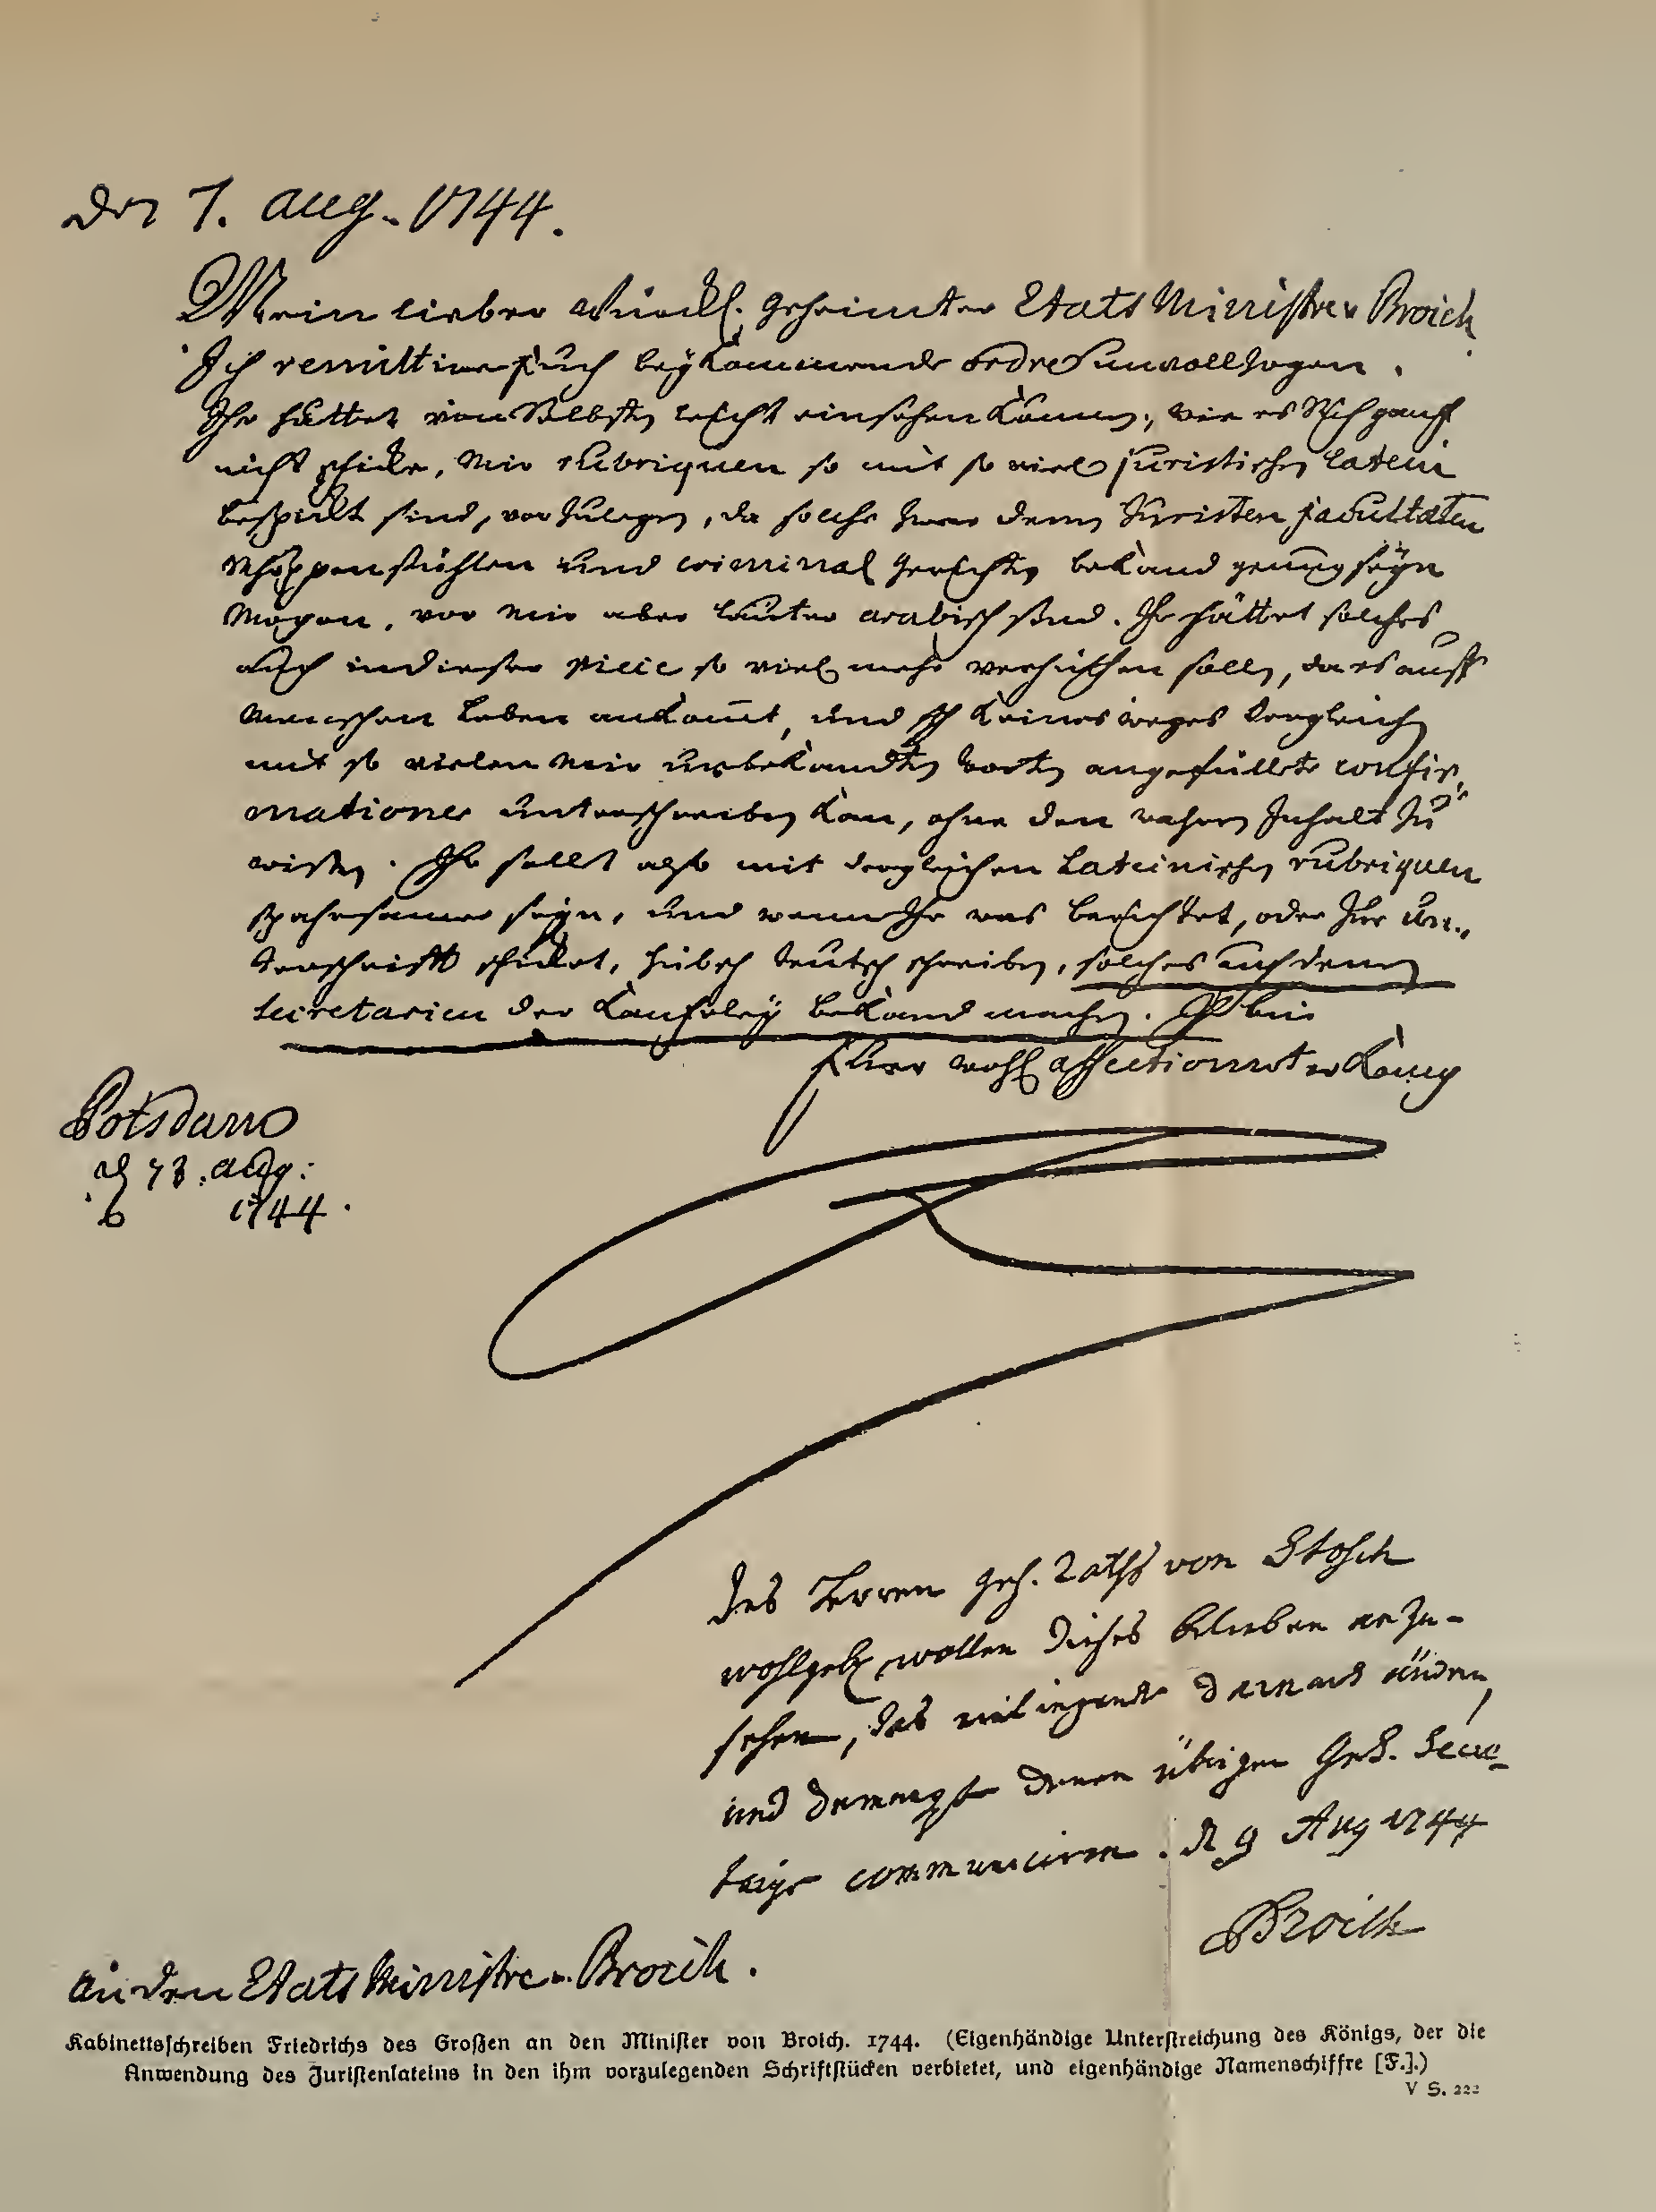 den 7. Aug. 1744.
Mein lieber Würckl. Geheimter Etats Ministre v Broich
Ich remittire Euch beykommende ordre unvollzogen.
Ihr hättet von Selbsten leicht einsehen können, wie es Sich gantz
nicht schicke, Mir rubriquen so mit so viel juristischen latein
bespickt sind, vorzulegen, da solche zwar denen Juristen facultäten
Schöppenstühlen und criminal Gerichten bekand genung seyn
mögen, vor mir aber lauter arabisch sind. Ihr hättet solches
auch in dieser Piece so viel mehr verhüthen sollen, da es auff
Menschen Leben ankommt, und ich keinesweges dergleichen
mit so vielen mir unbekandten worten angefüllete confir-
mationes unterschreiben kan, ohne den wahren Inhalt zu
wissen. Ihr sollt also mit dergleichen Lateinischen rubriquen
spahrsamer seyn, und wenn Ihr was berichtet, oder zur Un-
terschrifft schicket, hübsch deutsch schreiben, solches auch denen
Secretarien der Kantzeley bekand machen. Ich bin
Euer wohl affectionirter König
Potsdam
d 73. Aug:
6 1744.
des Herren geh. Raths von Stosch
wohlgeb. wollen dieses belieben anzu-
sehen, das einliegende darnach ändern,
und demnegst denen übrigen Geh. Secre-
taire communiciren. d 9 Aug 1744
Broich
An den Etats Ministre v. Broich.
Kabinettsschreiben Friedrichs des Großen an den Minister von Broich. 1744. (Eigenhändige Unterstreichung des Königs, der die
Anwendung des Juristenlateins in den ihm vorzulegenden Schriftstücken verbietet, und eigenhändige Namenschiffre [F.].)
V S. 222